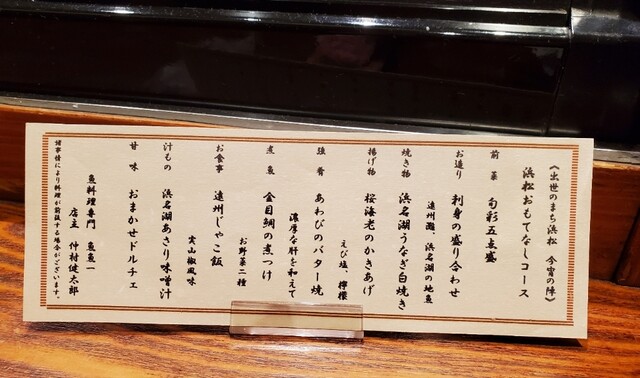 《出世のまち浜松 今宵の陣》
浜松おもてなしコース
前菜 旬彩五点盛
お造り 刺身の盛り合わせ
遠州灘、浜名湖の地魚
焼き物 浜名湖うなぎ白焼き
揚げ物 桜海老のかきあげ
えび塩、檸檬
強肴 あわびのバター焼
濃厚な肝を和えて
煮魚 金目鯛の煮つけ
お野菜二種
お食事 遠州じゃこ飯
実山椒風味
汁もの 浜名湖あさり味噌汁
甘味 おまかせドルチェ
魚料理専門 魚魚一
店主 仲村健太郎
諸事情により料理が前後する場合がございます。